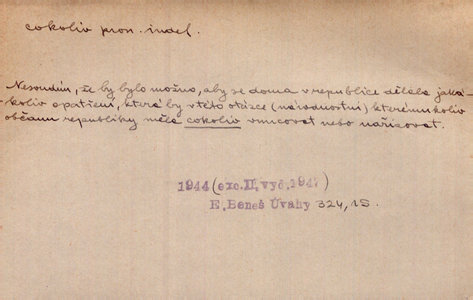 cokoliv pron. indef.
Nesoudím, že by bylo možno, aby se doma v republice dělala jaká-
koliv opatření, která by v této otázce (národnostní) kterémukoliv
občanu republiky měla cokoliv vnucovat nebo nařizovat.
1944 (exc. II. vyd. 1947)
E. Beneš Úvahy 324, 15.